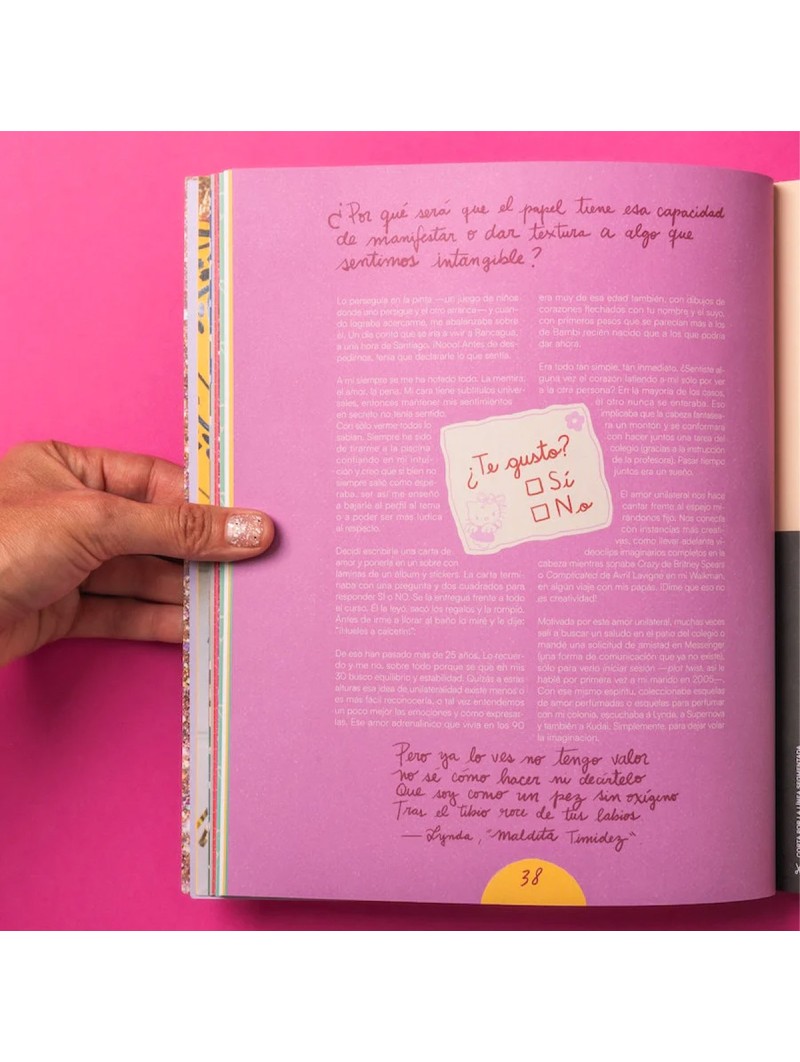 ¿Por qué será que el papel tiene esa capacidad
de manifestar o dar textura a algo que
sentimos intangible?
Lo perseguía en la pinta —un juego de niños
donde uno persigue y el otro arranca— y cuan-
do lograba acercarme, me abalanzaba sobre
él. Un día contó que se iría a vivir a Rancagua,
a una hora de Santiago. ¡Nooo! Antes de des-
pedirnos, tenía que declararle lo que sentía.
A mí siempre se me ha notado todo. La mentira,
el amor, la pena. Mi cara tiene subtítulos univer-
sales, entonces mantener mis sentimientos
en secreto no tenía sentido.
Con sólo verme todos lo
sabían. Siempre he sido
de tirarme a la piscina
confiando en mi intui-
ción y creo que si bien no
siempre salió como espe-
raba, ser así me enseñó
a bajarle el perfil al tema
o a poder ser más lúdica
al respecto.
Decidí escribirle una carta de
amor y ponerla en un sobre con
láminas de un álbum y stickers. La carta termi-
naba con una pregunta y dos cuadrados para
responder SÍ o NO. Se la entregué frente a todo
el curso. Él la leyó, sacó los regalos y la rompió.
Antes de irme a llorar al baño lo miré y le dije:
"¡Hueles a calcetín!".
De eso han pasado más de 25 años. Lo recuer-
do y me río, sobre todo porque sé que en mis
30 busco equilibrio y estabilidad. Quizás a estas
alturas esa idea de unilateralidad existe menos o
es más fácil reconocerla, o tal vez entendemos
un poco mejor las emociones y cómo expresar-
las. Ese amor adrenalínico que viví en los 90
era muy de esa edad también, con dibujos de
corazones flechados con tu nombre y el suyo,
con primeros besos que se parecían más a los
de Bambi recién nacido que a los que podría
dar ahora.
Era todo tan simple, tan inmediato. ¿Sentiste al-
guna vez el corazón latiendo a mil sólo por ver
a la otra persona? En la mayoría de los casos,
el otro nunca se enteraba. Eso
implicaba que la cabeza fantasea-
ra un montón y se conformara
con hacer juntos una tarea del
colegio (gracias a la instrucción
de la profesora). Pasar tiempo
juntos era un sueño.
El amor unilateral nos hace
cantar frente al espejo mi-
rándonos fijo. Nos conecta
con instancias más creati-
vas, como llevar adelante vi-
deoclips imaginarios completos en la
cabeza mientras sonaba Crazy de Britney Spears
o Complicated de Avril Lavigne en mi Walkman,
en algún viaje con mis papás. ¡Dime que eso no
es creatividad!
Motivada por este amor unilateral, muchas veces
salí a buscar un saludo en el patio del colegio o
mandé una solicitud de amistad en Messenger
(una forma de comunicación que ya no existe),
sólo para verlo iniciar sesión —plot twist, así le
hablé por primera vez a mi marido en 2005—.
Con ese mismo espíritu, coleccionaba esquelas
de amor perfumadas o esquelas para perfumar
con mi colonia, escuchaba a Lynda, a Supernova
y también a Kudai. Simplemente, para dejar volar
la imaginación.
¿Te gusto?
Sí
No
Pero ya lo ves no tengo valor
no sé cómo hacer ni decírtelo
Que soy como un pez sin oxígeno
Tras el tibio roce de tus labios.
— Lynda, "Maldita Timidez"
38